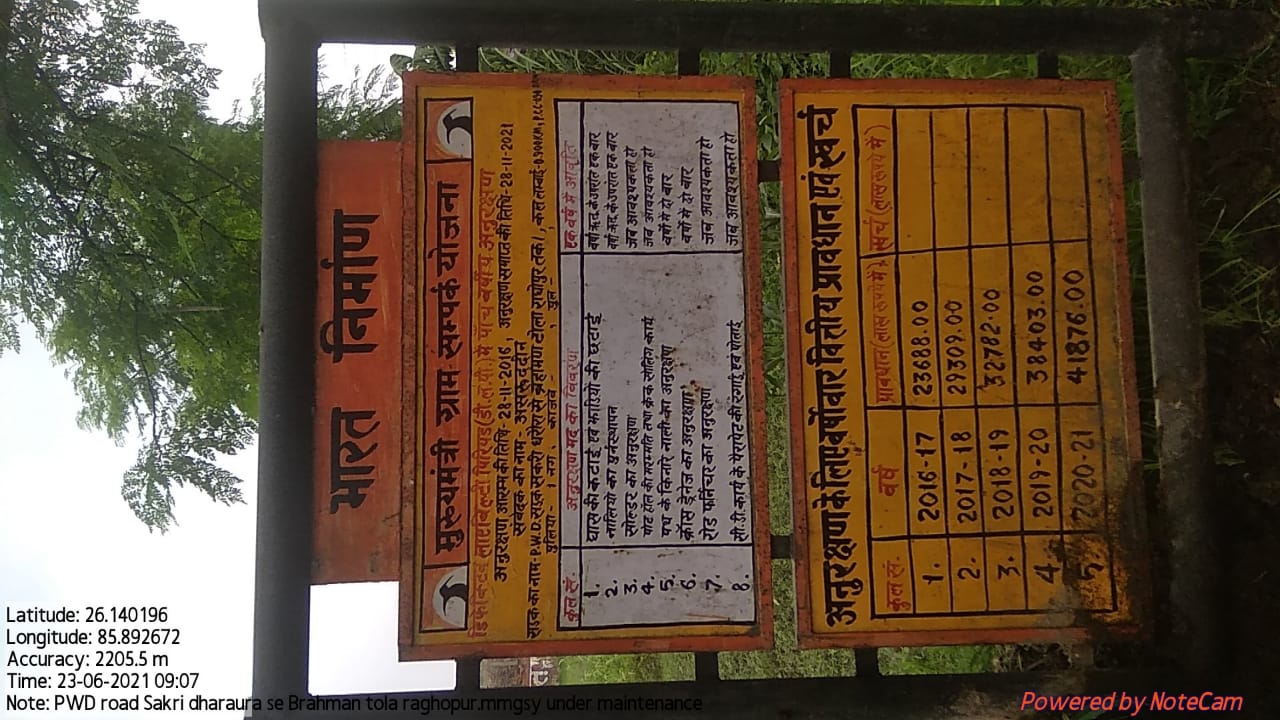 भारत निर्माण
मुख्यमंत्री ग्राम सम्पर्क योजना
डिफेक्टिव लाएबिलिटी पिरियड (डी.एल.पी.) में पाँच वर्षीय अनुरक्षण
अनुरक्षण आरम्भ की तिथि- 28-11-2016, अनुरक्षण समाप्त की तिथि- 28-11-2021
संवेदक का नाम- असरूददीन
रोड का नाम- P.W.D. सड़क सकरी धरौरा से ब्राहमण टोला राघोपुर तक।, कुल लम्बाई-0.700KM, P.C.C-
पुलिया- 1 नग, काजवे -, पुल -
कुल सं. अनुरक्षण मद का विवरण एक वर्ष में आवृति
1. घास की कटाई एवं झाड़ियों की छटाई वर्षा ऋतु के उपरांत एक बार
2. नालियों का पुनःस्थापन वर्षा ऋतु के उपरांत एक बार
3. सोल्डर का अनुरक्षण जब आवश्यकता हो
4. पॉट हॉल की मरम्मति तथा क्रेक सीलिंग कार्य जब आवश्यकता हो
5. पथ के किनारे नाली का अनुरक्षण वर्ष में दो बार
6. क्रॉस ड्रेनेज का अनुरक्षण वर्ष में दो बार
7. रोड फर्निचर का अनुरक्षण जब आवश्यकता हो
8. सी.डी. कार्य के पैरापेट की रंगाई एवं पोताई जब आवश्यकता हो
अनुरक्षण के लिए वर्षोवार वित्तीय प्रावधान एवं खर्च
कुल सं. वर्ष प्रावधान (लाख रूपये में) खर्च (लाख रूपये में)
1. 2016-17 23688.00
2. 2017-18 29309.00
3. 2018-19 32782.00
4. 2019-20 38403.00
5. 2020-21 41876.00
Latitude: 26.140196
Longitude: 85.892672
Accuracy: 2205.5 m
Time: 23-06-2021 09:07
Note: PWD road Sakri dharaura se Brahman tola raghopur.mmgsy under maintenance
Powered by NoteCam